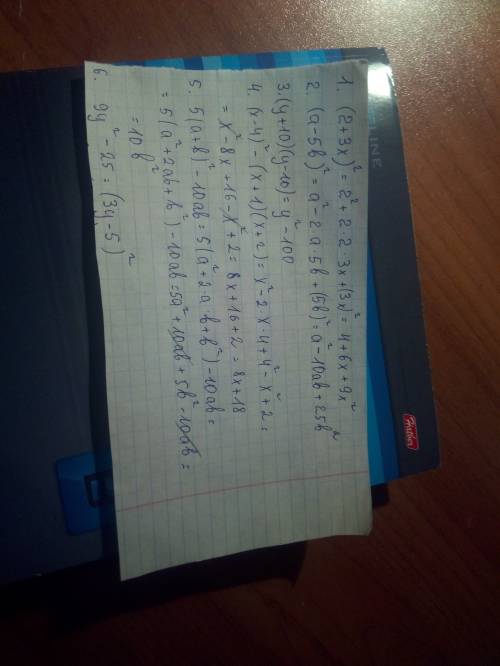 1. (2+3x)² = 2² + 2 · 2 · 3x + (3x)² = 4 + 6x + 9x²
2. (a-5b)² = a² - 2 · a · 5b + (5b)² = a² - 10ab + 25b²
3. (y+10)(y-10) = y² - 100
4. (x-4)² - (x+1)(x+2) = x² - 2 · x · 4 + 4² - x² + 2 =
= x² - 8x + 16 - x² + 2 = 8x + 16 + 2 = 8x + 18
5. 5(a+b)² - 10ab = 5(a² + 2 · a · b + b²) - 10ab =
= 5(a² + 2ab + b²) - 10ab = 5a² + 10ab + 5b² - 10ab =
= 10b²
6. 9y² - 25 = (3y-5)²
LINE